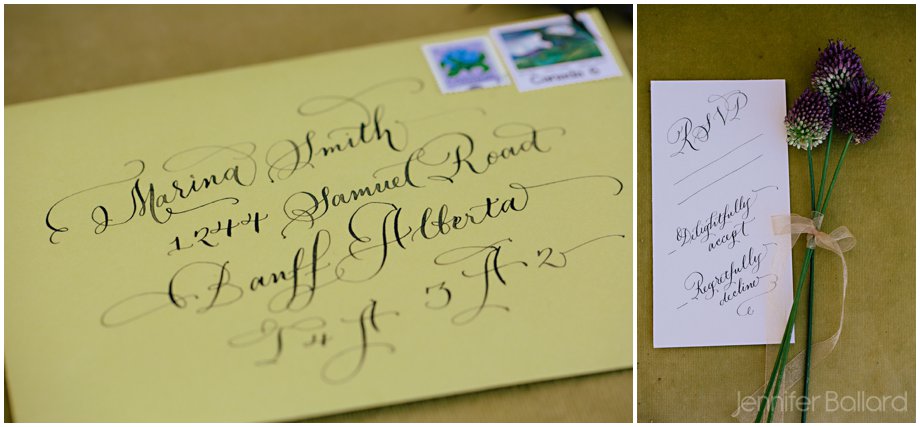 Canada
Marina Smith
1244 Samuel Road
Banff Alberta
T4A 3A2
RSVP
Dilightfully
accept
Regretfully
decline
Jennifer Ballard